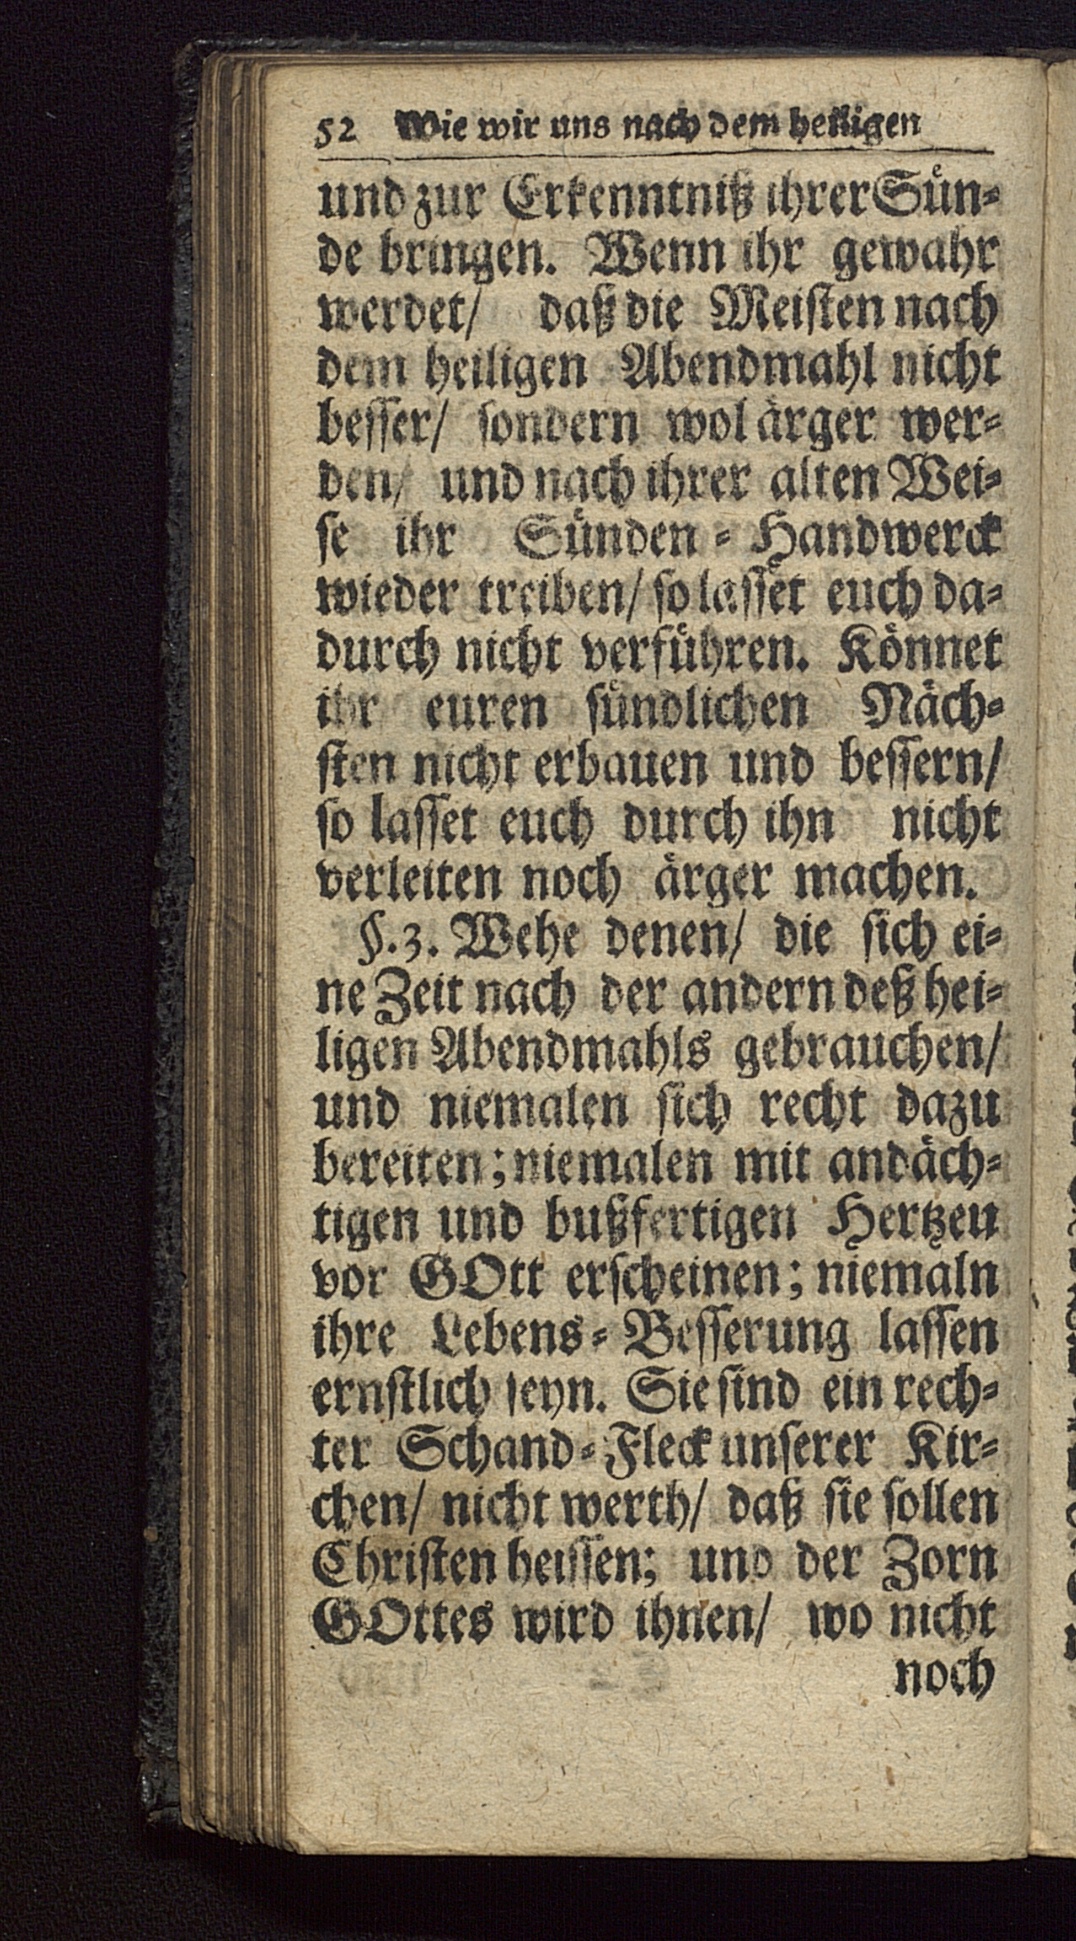 52 Wie wir uns nach dem heiligen
und zur Erkenntniß ihrer Sün-
de bringen. Wenn ihr gewahr
werdet/ daß die Meisten nach
dem heiligen Abendmahl nicht
besser/ sondern wol ärger wer-
den/ und nach ihrer alten Wei-
se ihr Sünden-Handwerck
wieder treiben/ so lasset euch da-
durch nicht verführen. Könnet
ihr euren sündlichen Näch-
sten nicht erbauen und bessern/
so lasset euch durch ihn nicht
verleiten noch ärger machen.
§.3. Wehe denen/ die sich ei-
ne Zeit nach der andern deß hei-
ligen Abendmahls gebrauchen/
und niemalen sich recht dazu
bereiten; niemalen mit andäch-
tigen und bußfertigen Hertzen
vor GOtt erscheinen; niemaln
ihre Lebens-Besserung lassen
ernstlich seyn. Sie sind ein rech-
ter Schand-Fleck unserer Kir-
chen/ nicht werth/ daß sie sollen
Christen heissen; und der Zorn
GOttes wird ihnen/ wo nicht
noch